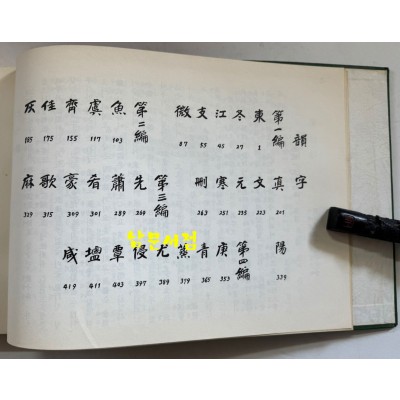 韻字
第一編
東 1
冬 27
江 45
支 55
微 87
第二編
魚 103
虞 117
齊 155
佳 175
灰 185
真 201
文 223
元 235
寒 251
刪 263
第三編
先 269
蕭 289
肴 301
豪 309
歌 315
麻 329
陽 339
第四編
庚 353
青 365
蒸 379
尤 389
侵 397
覃 403
塩 411
咸 419
남문서점